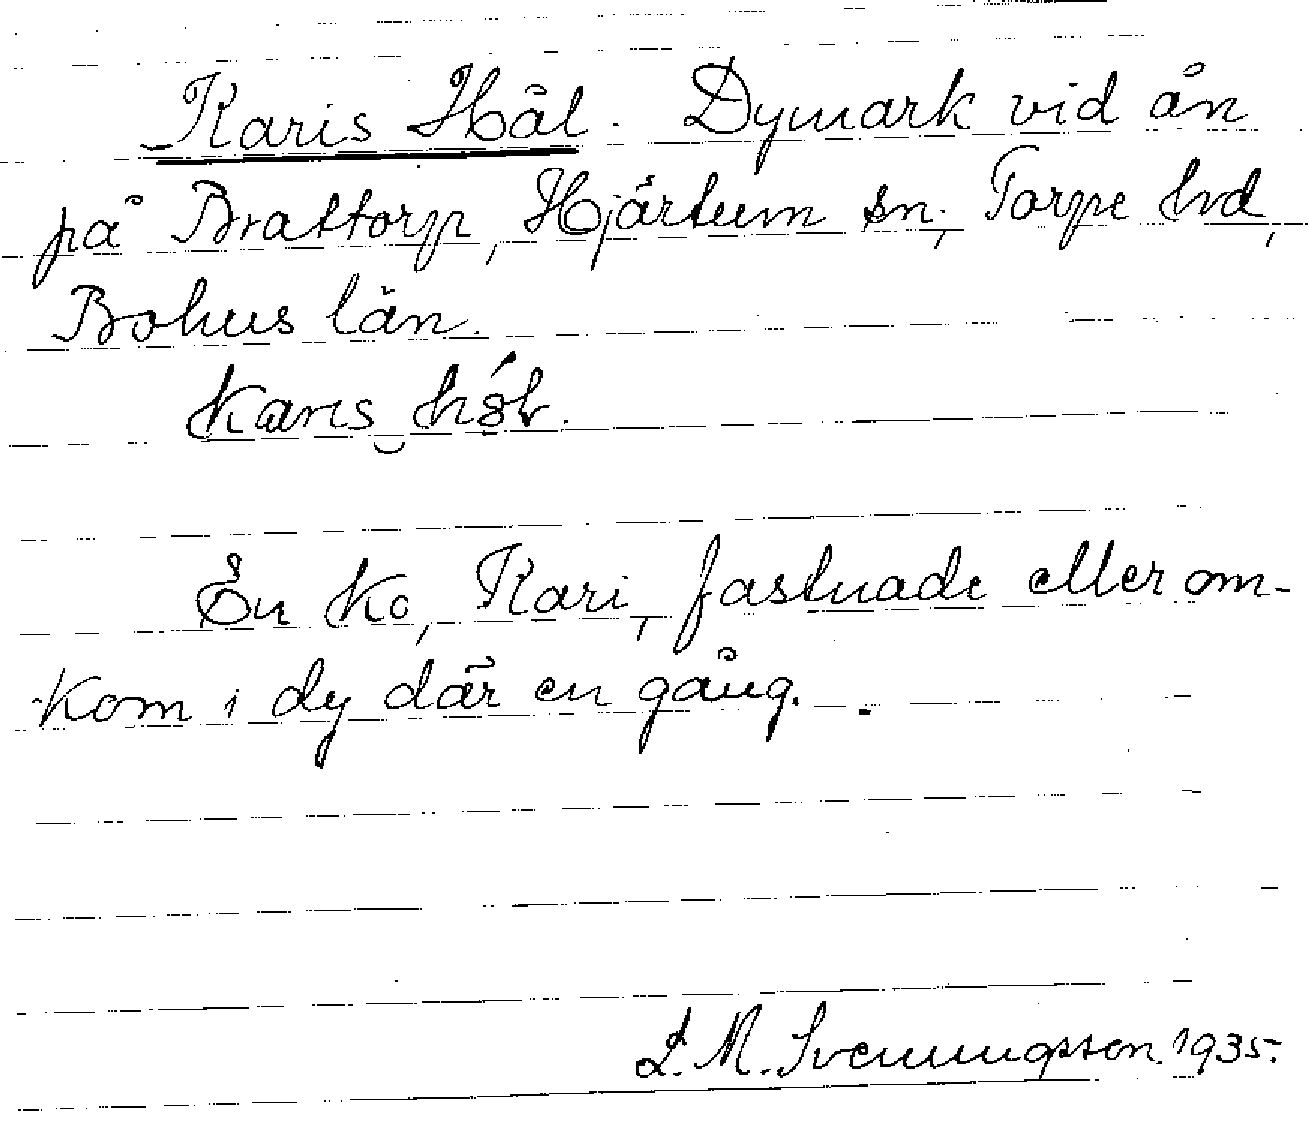 Karis Hål. Dymark vid ån
på Brattorp, Hjärtum sn, Torpe hd,
Bohus län.
En ko, Kari, fastnade eller om-
kom i dy där en gång.
S. M. Svenningsson 1935.